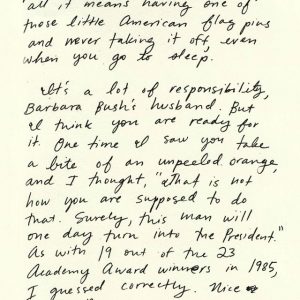 all it means having one of
those little American flag pins
and never taking it off, even
when you go to sleep.
It's a lot of responsibility,
Barbara Bush's husband. But
I think you are ready for
it. One time I saw you take
a bite of an unpeeled orange,
and I thought, "That is not
how you are supposed to do
that. Surely, this man will
one day turn into the President."
As with 19 out of the 23
Academy Award winners in 1985,
I guessed correctly. Nice